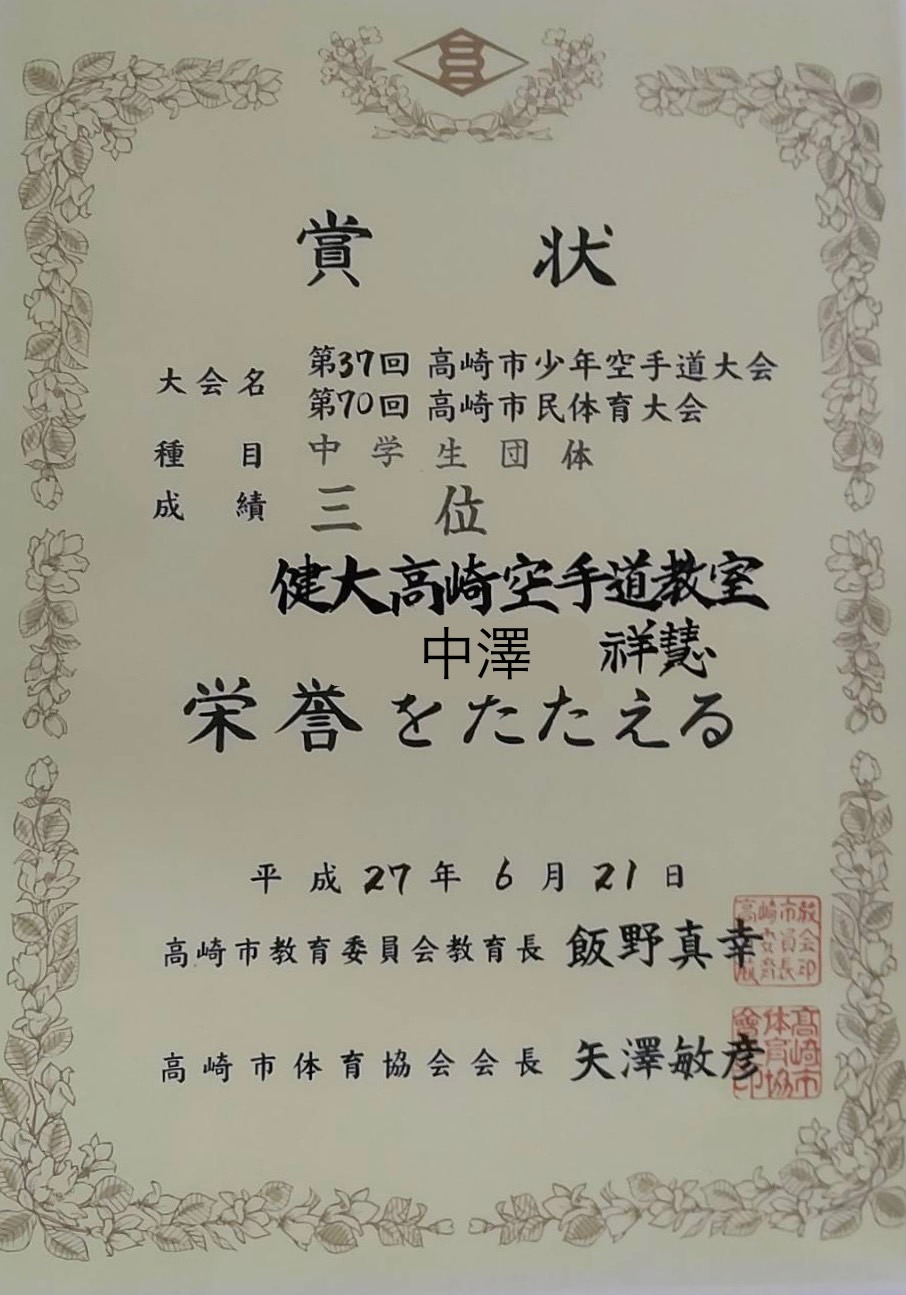 賞状
大会名
第37回 高崎市少年空手道大会
第70回 高崎市民体育大会
種目 中学生団体
成績 三位
健大高崎空手道教室
中澤 祥慧
栄誉をたたえる
平成27年6月21日
高崎市教育委員会教育長 飯野真幸
高崎市体育協会会長 矢澤敏彦
高崎市体育協會印